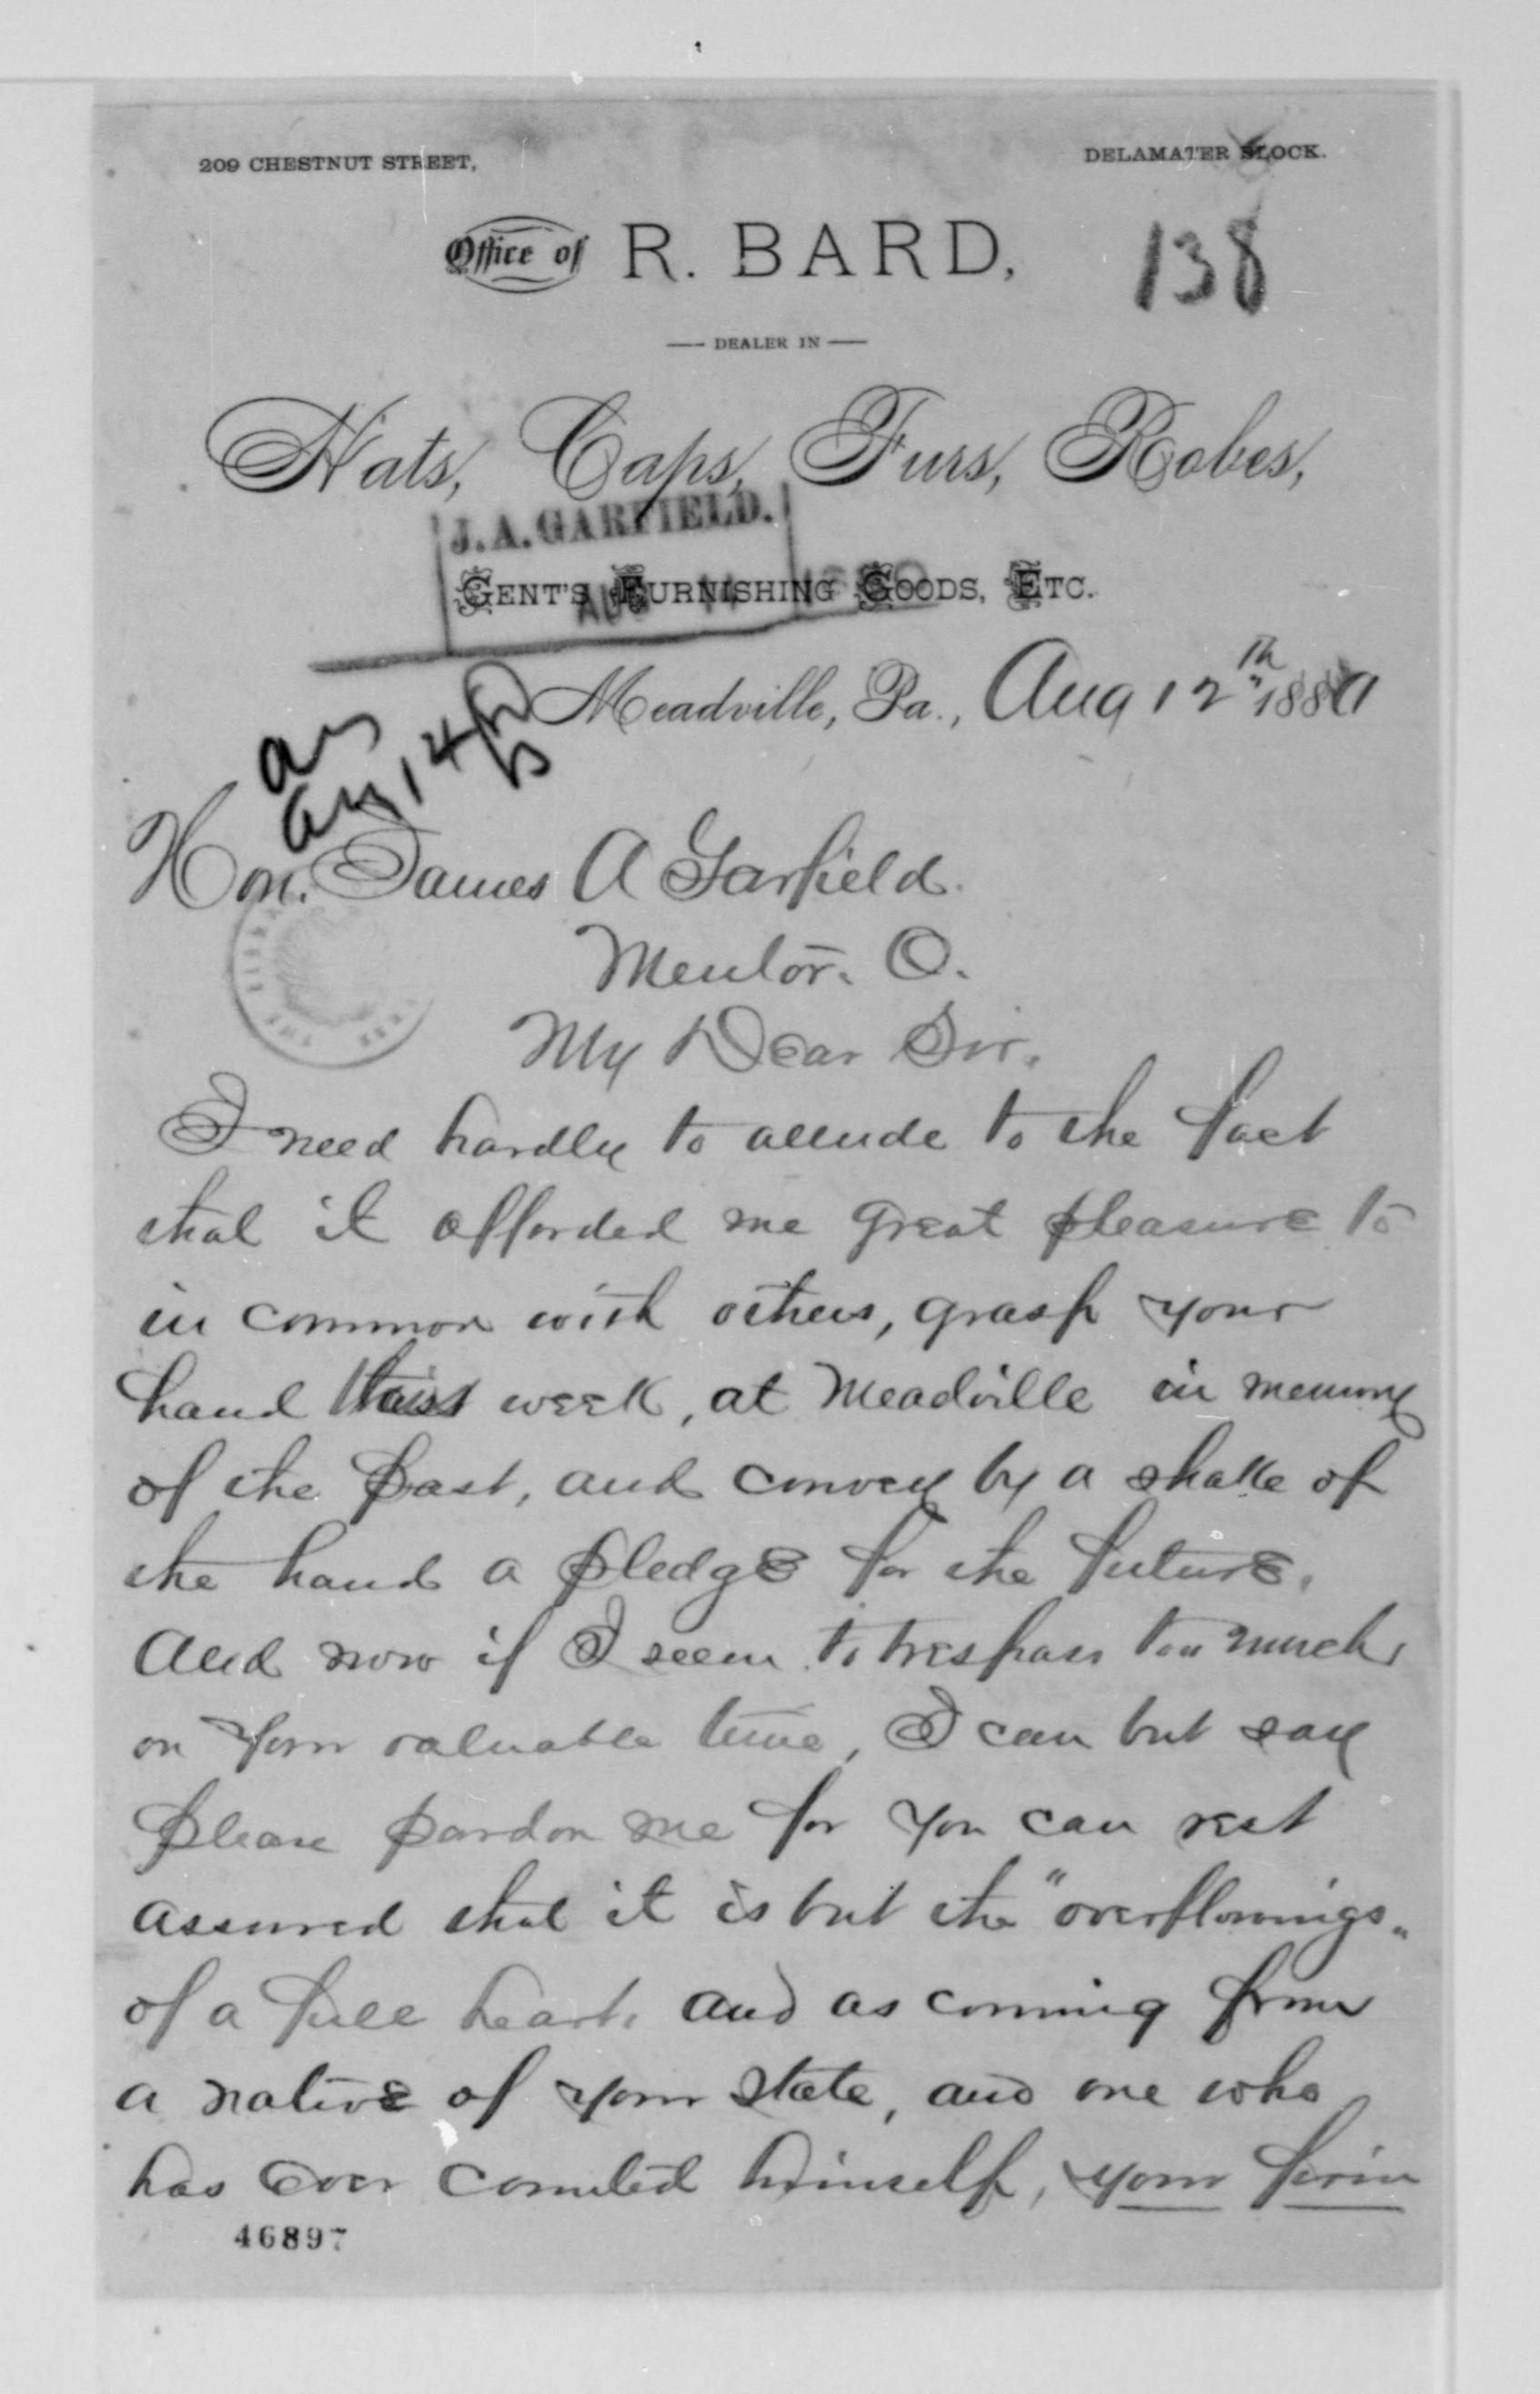 209 CHESTNUT STREET,
DELAMATER BLOCK.
Office of R. BARD,
138
DEALER IN
Hats, Caps, Furs, Robes,
J.A. GARFIELD.
GENT'S FURNISHING GOODS, ETC.
AUG 14 1880
Meadville, Pa., Aug 12th 1880
Aug 14
Hon. James A Garfield.
Mentor. O.
My Dear Sir.
I need hardly to allude to the fact
that it afforded me great pleasure to
in common with others, grasp your
hand this week, at Meadville in memory
of the past, and convey by a shake of
the hand a pledge for the future.
And now if I seem to trespass too much
on your valuable time, I can but say
please pardon me for you can rest
assured that it is but the "overflowings"
of a full heart. and as coming from
a native of your state, and one who
has ever counted himself, your firm
46897